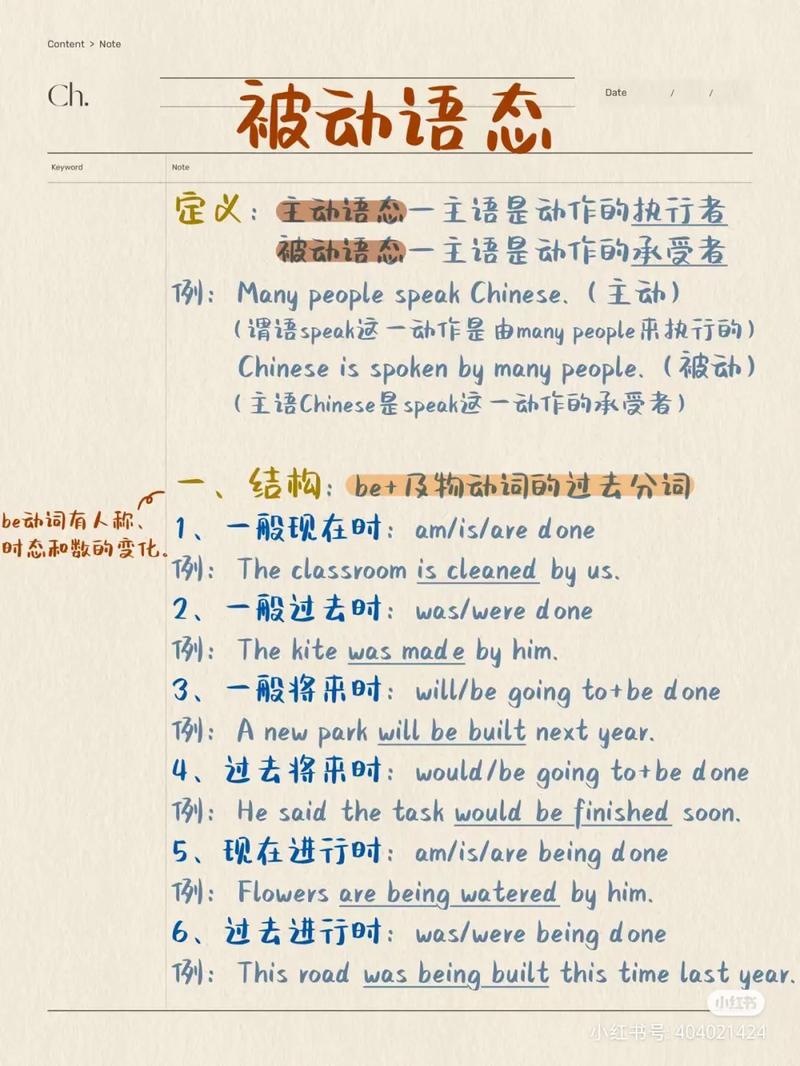 Content > Note
Ch.
被动语态
Date / /
Keyword
Note
定义：主动语态—主语是动作的执行者
被动语态—主语是动作的承受者
例：Many people speak Chinese.（主动）
（谓语speak这一动作是由many people来执行的）
Chinese is spoken by many people.（被动）
（主语Chinese是speak这一动作的承受者）
一、结构：be+及物动词的过去分词
be动词有人称、
时态和数的变化。
1、一般现在时：am/is/are done
例：The classroom is cleaned by us.
2、一般过去时：was/were done
例：The kite was made by him.
3、一般将来时：will/be going to+be done
例：A new park will be built next year.
4、过去将来时：would/be going to+be done
例：He said the task would be finished soon.
5、现在进行时：am/is/are being done
例：Flowers are being watered by him.
6、过去进行时：was/were being done
例：This road was being built this time last year.
小红书
小红书号：404021424